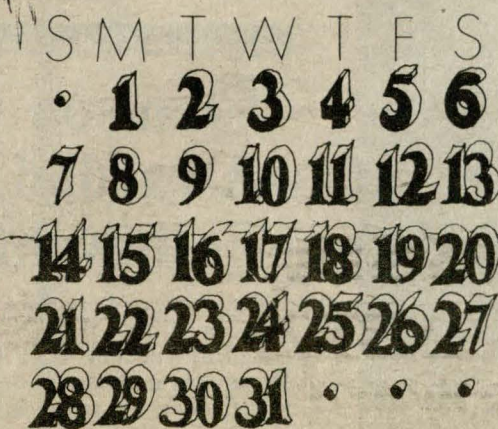 S M T W T F S
• 1 2 3 4 5 6
7 8 9 10 11 12 13
14 15 16 17 18 19 20
21 22 23 24 25 26 27
28 29 30 31 • • •